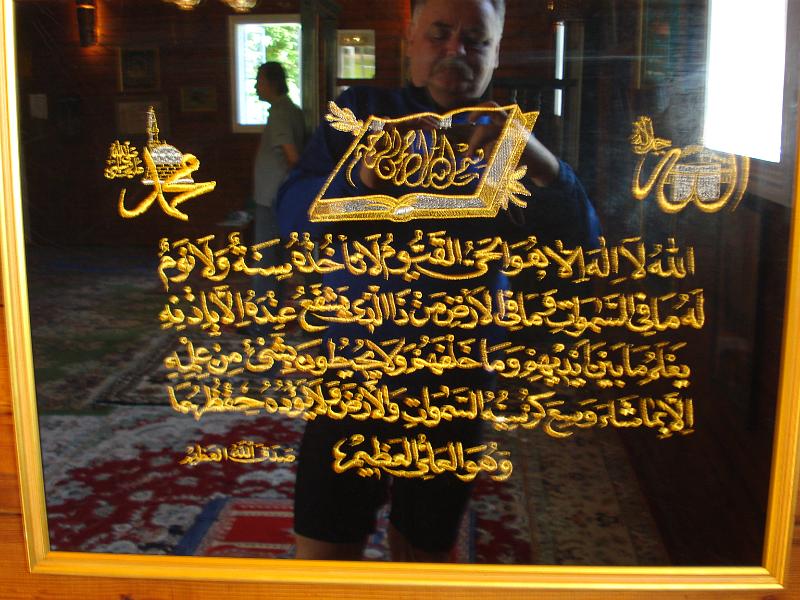 بسم الله الرحمن الرحيم
محمد
الله
الله لا إله إلا هو الحي القيوم لا تأخذه سنة ولا نوم
له ما في السموات وما في الأرض من ذا الذي يشفع عنده إلا بإذنه
يعلم ما بين أيديهم وما خلفهم ولا يحيطون بشئ من علمه
إلا بما شاء وسع كرسيه السموات والأرض ولا يؤده حفظهما
وهو العلي العظيم
صدق الله العظيم